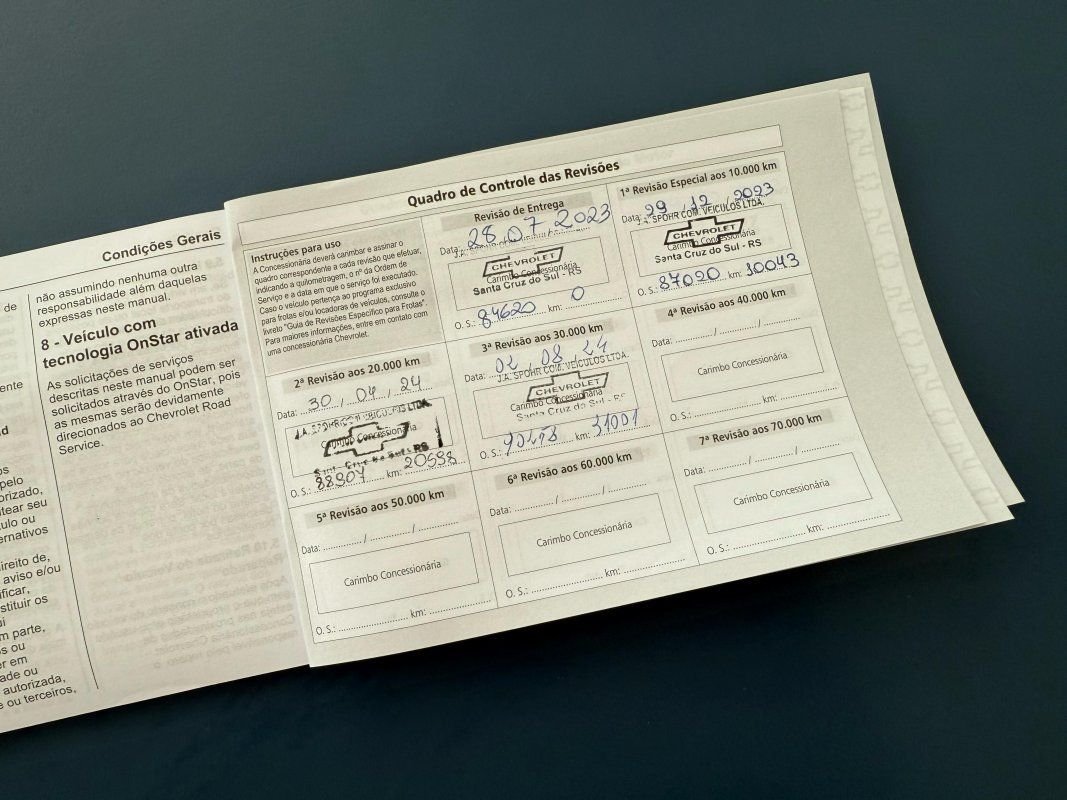 de
ente
d
s
pelo
orizado,
tear seu
ulo ou
ernativos
ireito de,
aviso e/ou
ificar,
stituir os
ui
m parte,
s ou
er em
ade ou
autorizada,
e ou terceiros,
Condições Gerais
não assumindo nenhuma outra
responsabilidade além daquelas
expressas neste manual.
8 - Veículo com
tecnologia OnStar ativada
As solicitações de serviços
descritas neste manual podem ser
solicitados através do OnStar, pois
as mesmas serão devidamente
direcionados ao Chevrolet Road
Service.
Quadro de Controle das Revisões
Instruções para uso
A Concessionária deverá carimbar e assinar o
quadro correspondente a cada revisão que efetuar,
indicando a quilometragem, o nº da Ordem de
Serviço e a data em que o serviço foi executado.
Caso o veículo pertença ao programa exclusivo
para frotas e/ou locadoras de veículos, consulte o
livreto "Guia de Revisões Específico para Frotas".
Para maiores informações, entre em contato com
uma concessionária Chevrolet.
Revisão de Entrega
Data: 28.07.2023
CHEVROLET
Carimbo Concessionária
Santa Cruz do Sul - RS
O. S.: 84620 km: 0
1ª Revisão Especial aos 10.000 km
Data: 29 / 12 / 2023
J.A. SPOHR COM. VEÍCULOS LTDA.
CHEVROLET
Carimbo Concessionária
Santa Cruz do Sul - RS
O. S.: 87020 km: 10043
2ª Revisão aos 20.000 km
Data: 30 / 04 / 24
J.A. SPOHR COM. VEÍCULOS LTDA.
Carimbo Concessionária
Santa Cruz do Sul - RS
O. S.: 88907 km: 20598
3ª Revisão aos 30.000 km
Data: 02 / 08 / 24
J.A. SPOHR COM. VEÍCULOS LTDA.
CHEVROLET
Carimbo Concessionária
Santa Cruz do Sul - RS
O. S.: km: 31001
4ª Revisão aos 40.000 km
Data: ............/............/............
Carimbo Concessionária
O. S.: ........................ km: ................
5ª Revisão aos 50.000 km
Data: ............/............/............
Carimbo Concessionária
O. S.: ........................ km: ................
6ª Revisão aos 60.000 km
Data: ............/............/............
Carimbo Concessionária
O. S.: ........................ km: ................
7ª Revisão aos 70.000 km
Data: ............/............/............
Carimbo Concessionária
O. S.: ........................ km: ................